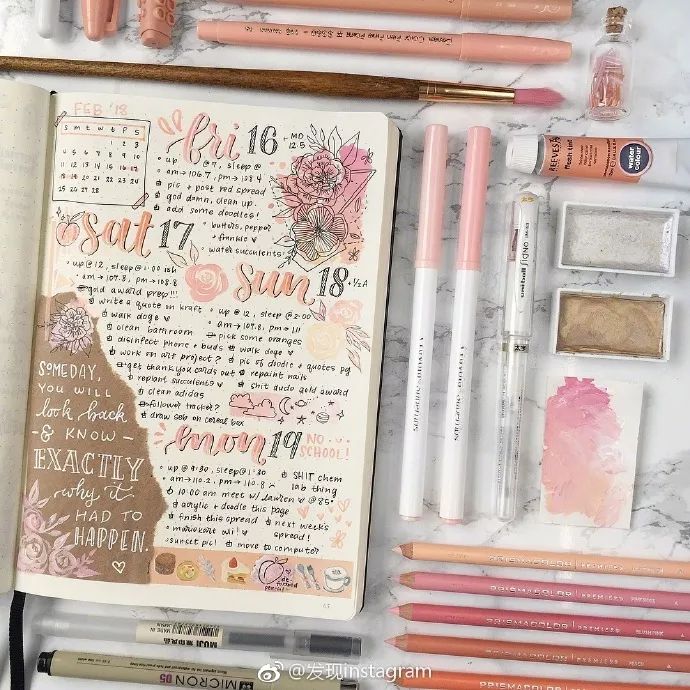 FEB '18
S M T W T F S
1 2 3
4 5 6 7 8 9 10
11 12 13 14 15 16 17
18 19 20 21 22 23 24
25 26 27 28
fri 16
MD 12.5
up @ 7, sleep @
am → 106.7, pm → 108.4
pic + post red spread
god damn, clean up.
add some doodles!
butters, pepper
+ frankie
water succulents!
sat 17
up @ 12, sleep @ 1:00 ish
am → 107.8, pm → 108.8
gold award prep!!!
write a quote on kraft
walk doge
clean bathroom
disinfect phone + buds
work on art project?
get thank you cards out
replant succulents
clean adidas
follower tracker?
draw seb on cereal box
sun 18
+ ½ A
up @ 12, sleep @ 2:00
am → 107.8, pm → 111
pick some oranges
walk doge
pic of doodle + quotes pg
repaint nails
shit dudo gold award
mon 19
NO SCHOOL!
up @ 9:30, sleep @ 1:30
am → 110.2, pm → 110.8
10:00 am meet w/ Lauren @ 85°
acrylic + doodle this page
finish this spread
mariokart wii!
sunset pic!
move to computer
SHIT chem lab thing
next week's spread!
SOMEDAY,
YOU WILL
look back
- & KNOW -
EXACTLY
why it
HAD TO
HAPPEN.
REEVES
Flesh tint
water colour
uni-ball SIGNO
PRISMACOLOR PREMIER
PRISMACOLOR PREMIER
PRISMACOLOR PREMIER
PRISMACOLOR PREMIER
PRISMACOLOR
MUJI 無印良品
MICRON 05
@发现instagram